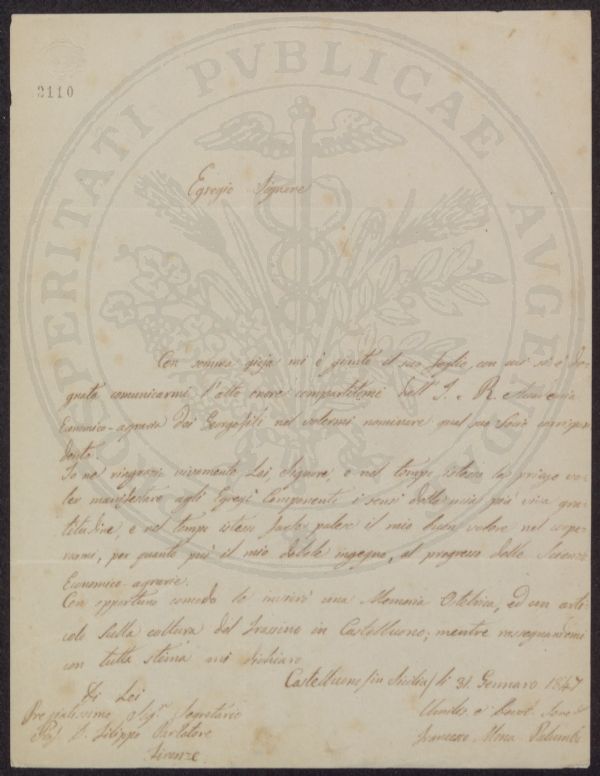 2110
PROSPERITATI PVBLICAE AVGENDAE
Egregio Signore
Con somma gioja mi è giunto il suo foglio, con cui si è de
gnato comunicarmi l'alto onore compartitomi dall'I. e R. Accademia
Economico-agraria dei Georgofili nel volermi nominare qual suo Socio corrispon
dente.
Io ne ringrazio vivamente Lei, Signore, e nel tempo istesso la priego vo
ler manifestare agli Egregi Componenti i sensi della mia più viva gra
titudine, e nel tempo istesso far loro palese il mio buon volere nel coope
rarmi, per quanto può il mio debole ingegno, al progresso delle Scienze
Economico-agrarie.
Con opportuno comodo le invierò una Memoria ed un arti
colo sulla coltura del Frassino in Castelbuono; mentre rassegnandomi
con tutta stima mi dichiaro
Castelbuono in Sicilia li 31 Gennaro 1847
Di Lei
Pregiatissimo Sigr. Segretario
Prof. D. Filippo
Firenze
Umilis. e Devot. Serv.
Francesco Mina Palumbo